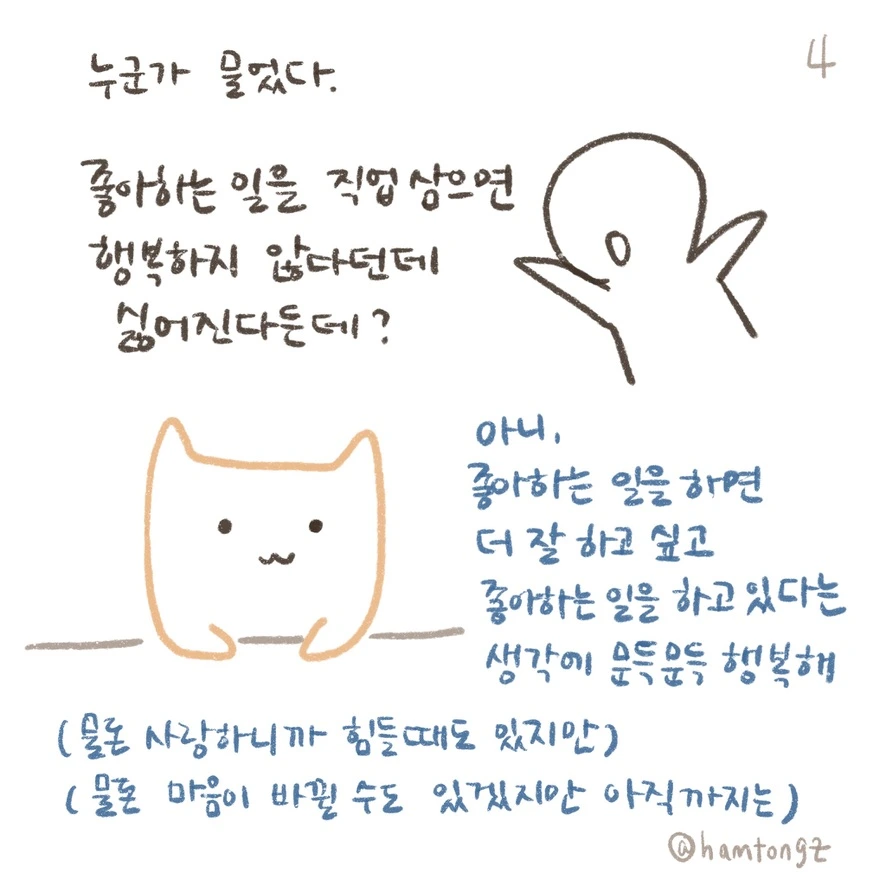 4
누군가 물었다.
좋아하는 일을 직업 삼으면
행복하지 않다던데
싫어진다든데?
아니,
좋아하는 일을 하면
더 잘 하고 싶고
좋아하는 일을 하고 있다는
생각에 문득문득 행복해
(물론 사랑하니까 힘들때도 있지만)
(물론 마음이 바뀔 수도 있겠지만 아직까지는)
@hamtongz